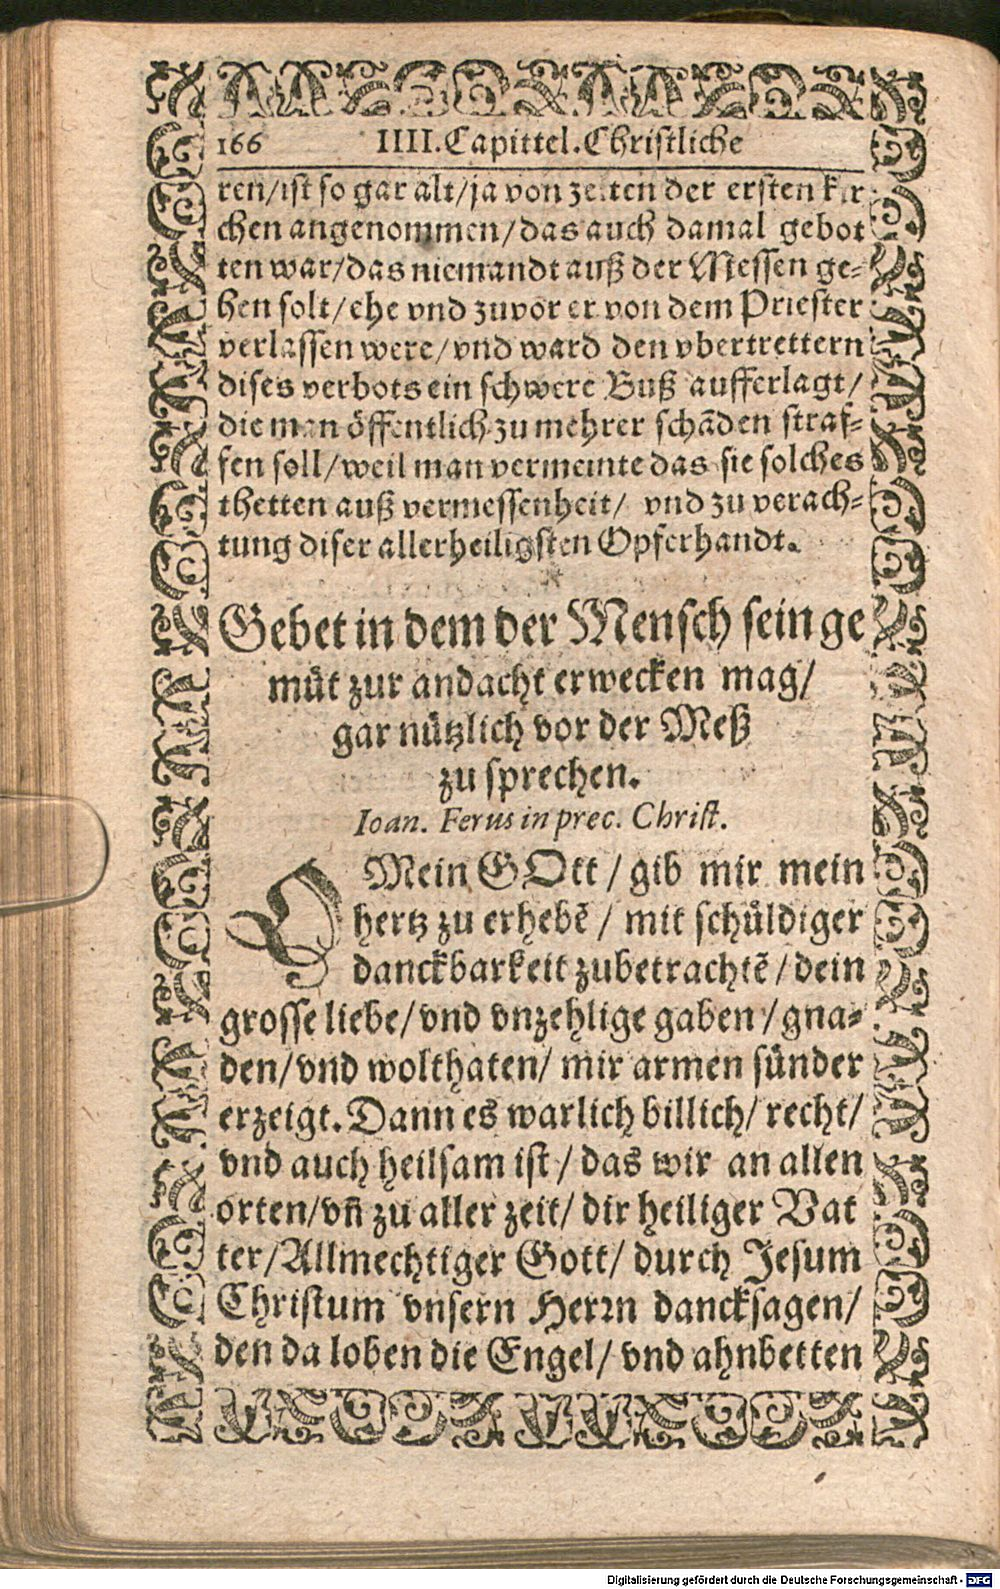 166 IIII. Capittel. Christliche
ren/ist so gar alt/ja von zeiten der ersten kir
chen angenommen/das auch damal gebot
ten war/das niemandt auß der Messen ge-
hen solt/ehe vnd zuvor er von dem Priester
verlassen were/vnd ward den vbertrettern
dises verbots ein schwere Buß aufferlagt/
die man öffentlich zu mehrer schãden straf-
fen soll/weil man vermeinte das sie solches
thetten auß vermessenheit/ vnd zu verach-
tung diser allerheiligsten Opferhandt.
Gebet in dem der Mensch sein ge
müt zur andacht erwecken mag/
gar nützlich vor der Meß
zu sprechen.
Ioan. Ferus in prec. Christ.
O Mein GOtt / gib mir mein
hertz zu erhebẽ / mit schüldiger
danckbarkeit zubetrachtẽ / dein
grosse liebe/vnd vnzehlige gaben / gna-
den/vnd wolthaten/ mir armen sünder
erzeigt. Dann es warlich billich/ recht/
vnd auch heilsam ist / das wir an allen
orten/vñ zu aller zeit/ dir heiliger Vat
ter/Allmechtiger Gott/ durch Jesum
Christum vnsern Herrn dancksagen/
den da loben die Engel/ vnd ahnbetten
Digitalisierung gefördert durch die Deutsche Forschungsgemeinschaft - DFG